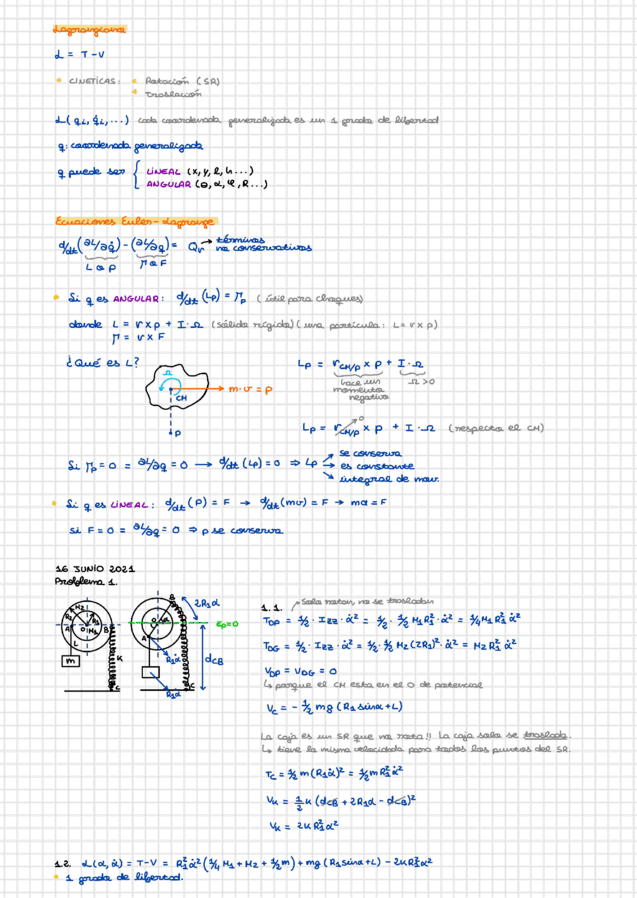 Lagrangiana
L = T - V
• CINETICAS: • Rotación (SR)
• Traslación
L(qi, q̇i, ...) cada coordenada generalizada es un 1 grado de libertad
q: coordenada generalizada
q puede ser { LINEAL (x, y, l, h...)
ANGULAR (θ, α, φ, R...)
Ecuaciones Euler-Lagrange
d/dt(∂L/∂q̇) - (∂L/∂q) = Qv → términos no conservativos
L o P M o F
• Si q es ANGULAR: d/dt (Lp) = Mp (útil para choques)
donde L = r x p + I·Ω (sólido rígido) (una partícula: L = r x p)
M = r x F
¿Qué es L?
Ω
CM
m·v = p
p
Lp = rCM/P x p + I·Ω
hace un momento negativo
Ω > 0
Lp = rCM/P x p + I·Ω (respecto el CM)
0
Si Mp = 0 = ∂L/∂q = 0 → d/dt (Lp) = 0 ⇒ Lp → se conserva
→ es constante
→ integral de mov.
• Si q es LINEAL: d/dt (P) = F → d/dt (mv) = F → ma = F
si F = 0 = ∂L/∂q = 0 ⇒ p se conserva
16 JUNIO 2021
Problema 1.
M2
R1
O
M1
A
B
L
m
K
C
B
O
α
A
R1α̇
R1α
C
2R1α
Ep=0
dCB
1.1. → Solo rotan, no se trasladan
TDP = 1/2 · Izz · α̇² = 1/2 · 1/2 M1 R1² · α̇² = 1/4 M1 R1² α̇²
TDG = 1/2 · Izz · α̇² = 1/2 · 1/2 M2 (2R1)² · α̇² = M2 R1² α̇²
VDP = VDG = 0
↳ porque el CM esta en el 0 de potencial
Vc = - 1/2 mg (R1 sinα + L)
La caja es un SR que no rota!! La caja solo se traslada.
↳ tiene la misma velocidad para todos los puntos del SR.
Tc = 1/2 m (R1α̇)² = 1/2 m R1² α̇²
Vk = 1/2 K (dCB + 2R1α - dCB)²
Vk = 2K R1² α²
1.2. L(α, α̇) = T - V = R1² α̇² (1/4 M1 + M2 + 1/2 m) + mg (R1 sinα + L) - 2K R1² α²
• 1 grado de libertad.